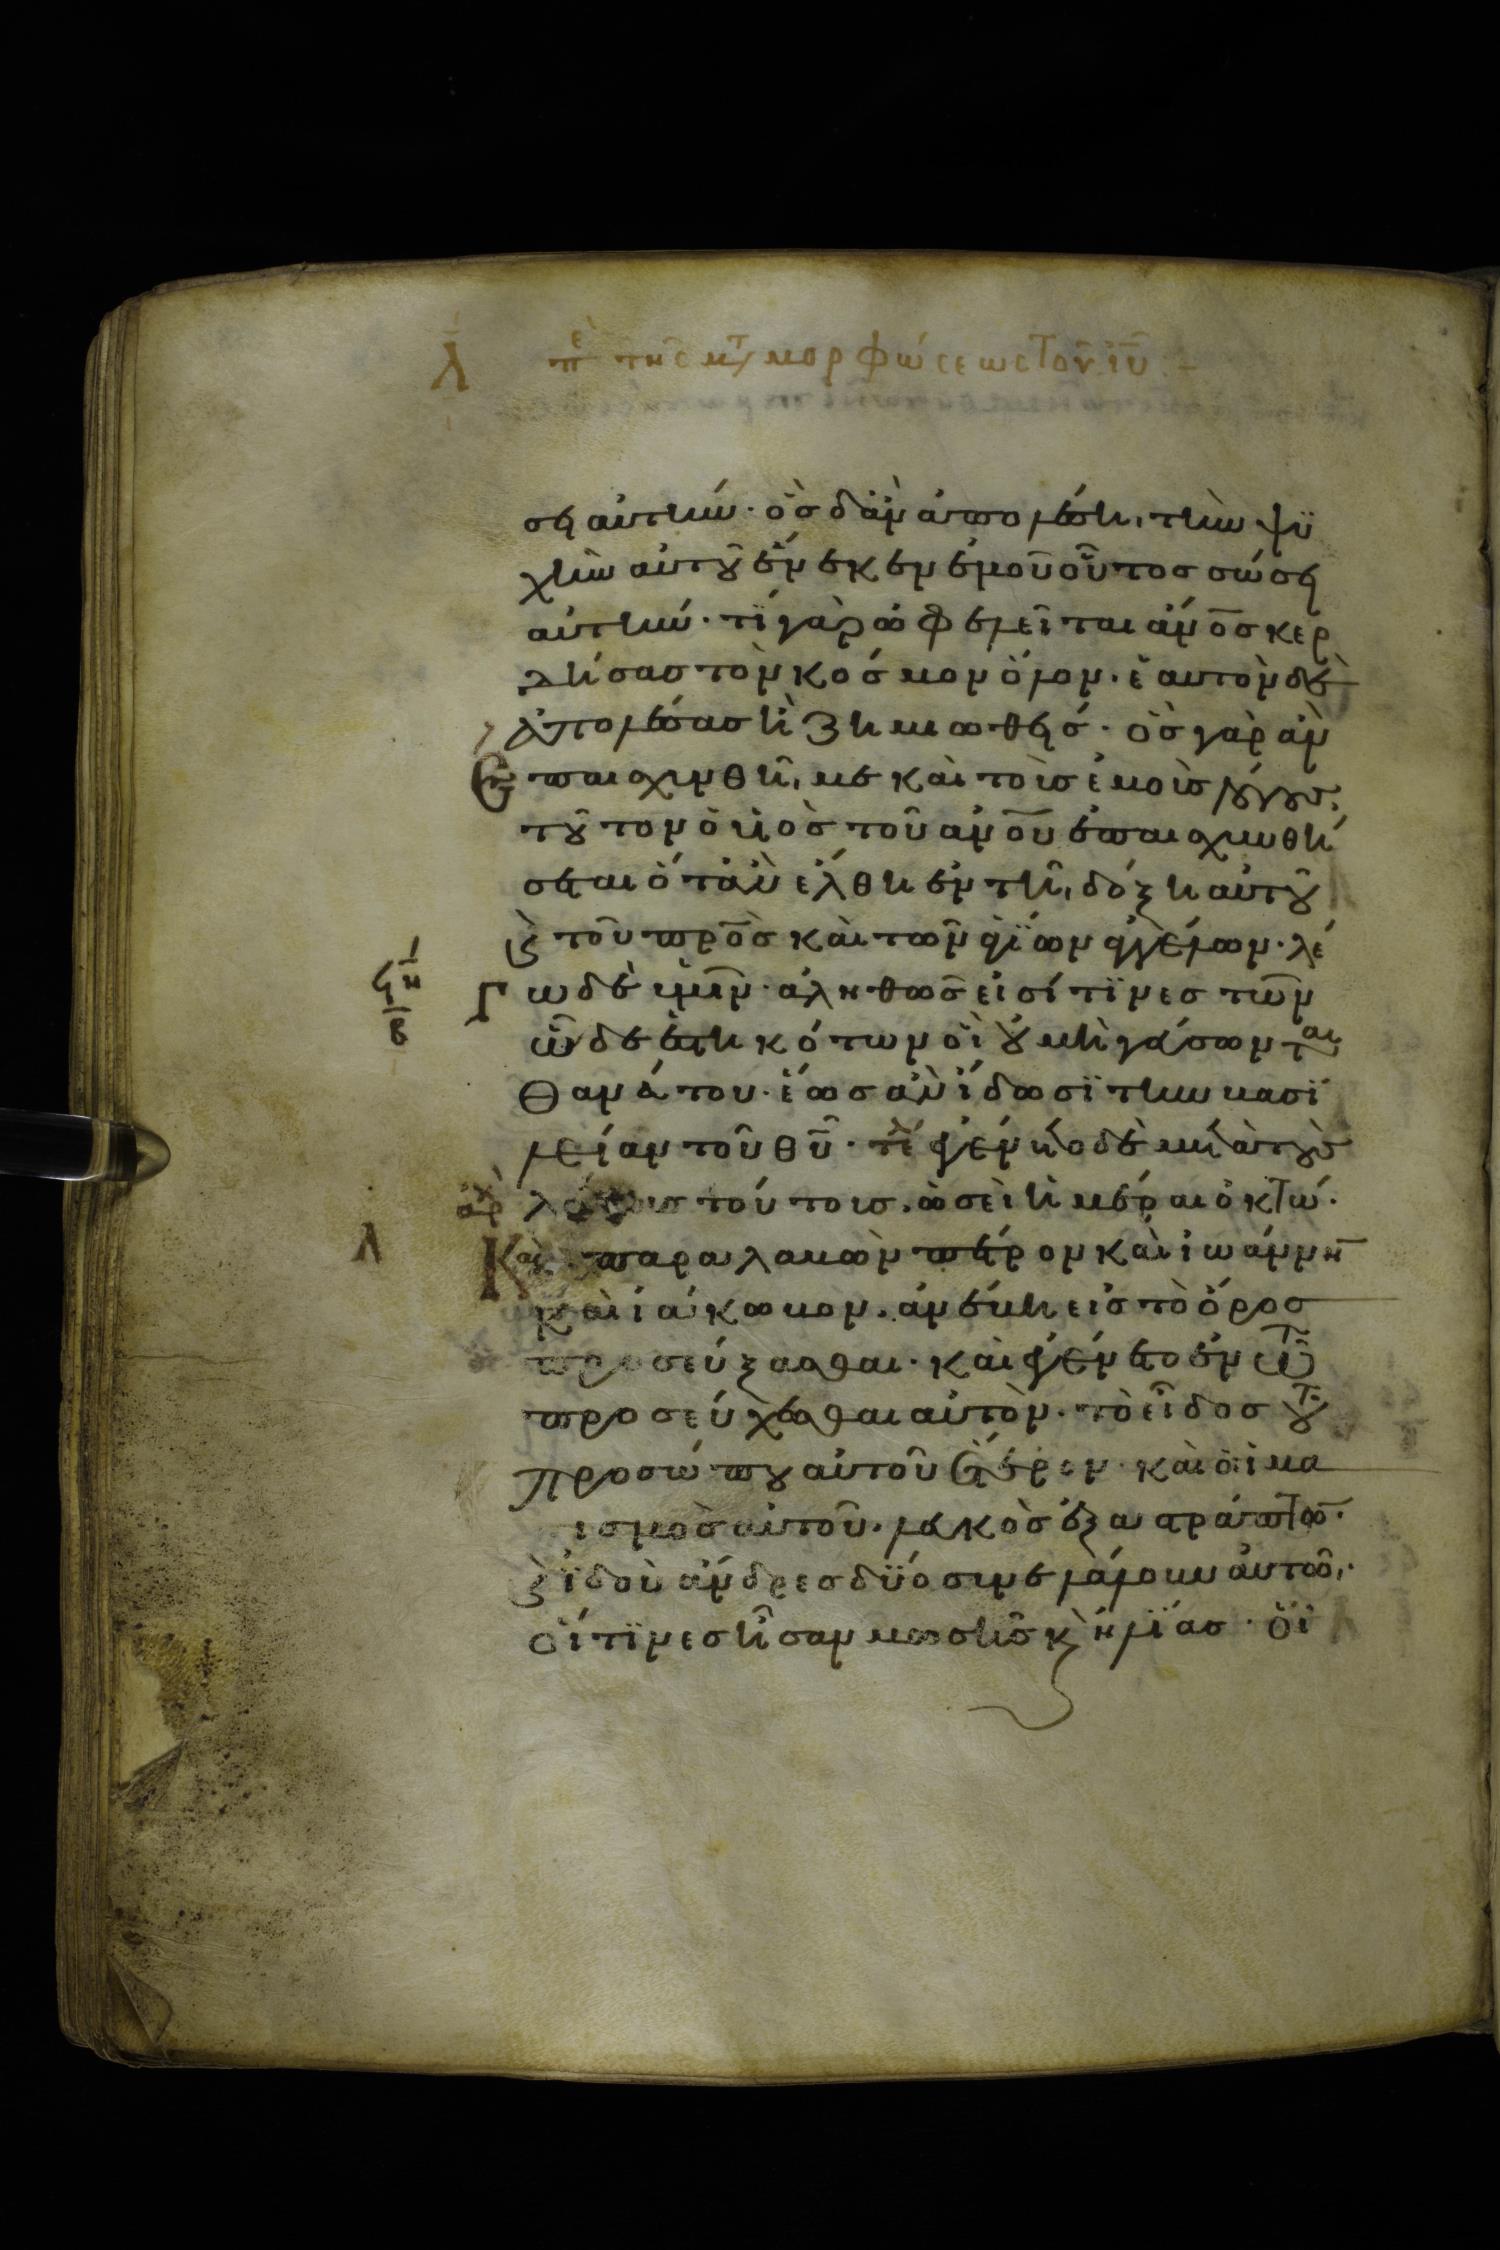 Λ πε της μτ μορφώσεως τοῦ ιῦ
σει αὐτήν· ὃς δ ἂν ἀπολέσῃ, τὴν ψυ
χὴν αὐτοῦ ἕνεκεν ἐμοῦ οὗτος σώσει
αὐτήν· τί γὰρ ὠφελεῖται ἄνο̅ς κερ
δήσας τὸν κόσμον ὅλον· ἑαυτὸν δὲ
ἀπολέσας ἢ ζημιωθείς· ὃς γὰρ ἂν
ἐπαισχυνθῇ, με καὶ τοὺς ἐμοὺς λόγους,
τοῦτον ὁ υἱὸς τοῦ ανο̅υ ἐπαισχυνθή
σεται ὅταν ἔλθῃ ἐν τῇ, δόξῃ αὐτοῦ
ϛ τοῦ προ̅ς καὶ τῶν ἁγίων ἀγγέλων· λέ
γω δὲ ὑμῖν· ἀληθῶς εἰσί τινες τῶν
ὧδε ἑστηκότων οἳ οὐ μὴ γεύσωνται
θανάτου· ἕως ἂν ἴδωσι τὴν βασι
λείαν τοῦ θῦ· ἐγένετο δὲ μετὰ τοὺς
λόγους τούτους, ὡσεὶ ἡμέραι ὀκτώ·
Καὶ παραλαβὼν πέτρον καὶ ἰωάννην
καὶ ἰάκωβον, ἀνέβη εἰς τὸ ὄρος
προσεύξασθαι· καὶ ἐγένετο ἐν τῷ
προσεύχεσθαι αὐτὸν· τὸ εἶδος τοῦ
προσώπου αὐτοῦ ἕτερον· καὶ ὁ ἱμα
τισμὸς αὐτοῦ· λευκὸς ἐξαστράπτων·
ϛ ἰδοὺ ἄνδρες δύο συνελάλουν αὐτῷ,·
οἵτινες ἦσαν μωσῆς κ ἠλίας· οἳ